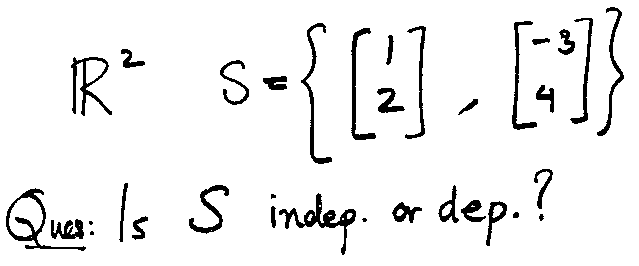 ℝ² S = { [1 2], [-3 4] }
Ques: Is S indep. or dep.?